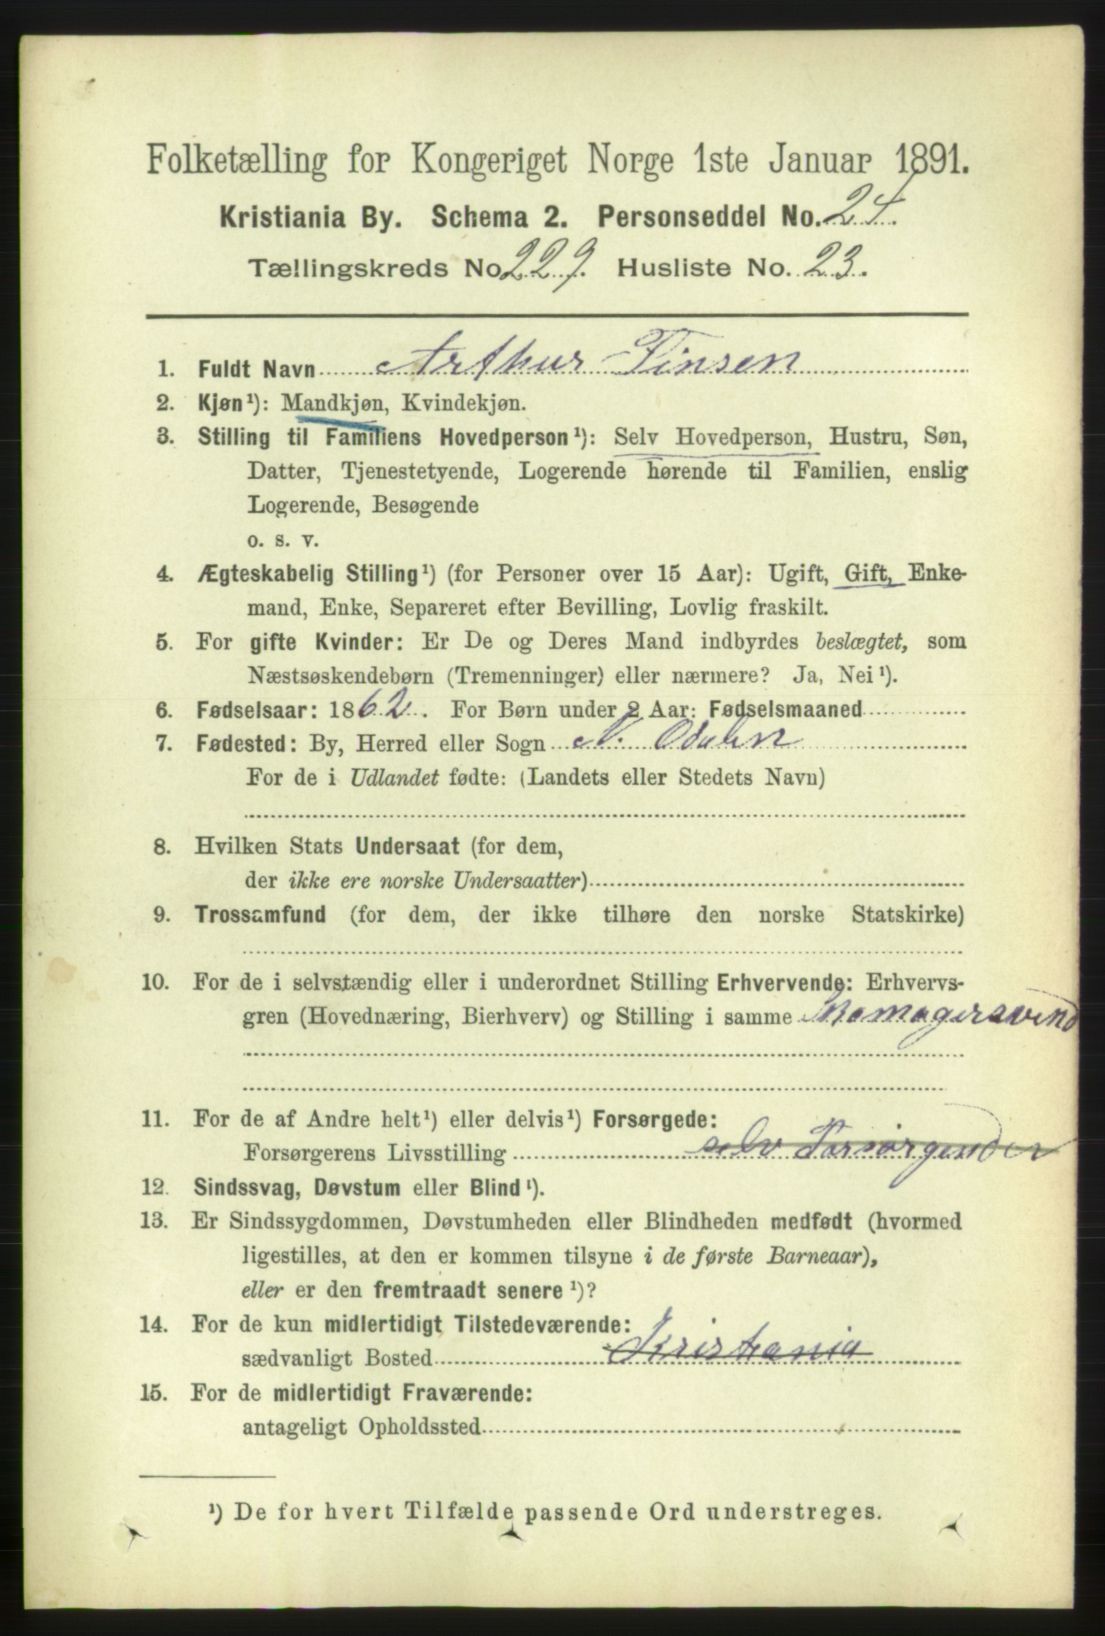 Folketælling for Kongeriget Norge 1ste Januar 1891.
Kristiania By. Schema 2. Personseddel No. 24.
Tællingskreds No. 229. Husliste No. 23.
1. Fuldt Navn Arthur Finsen
2. Kjøn¹): Mandkjøn, Kvindekjøn.
3. Stilling til Familiens Hovedperson¹): Selv Hovedperson, Hustru, Søn,
Datter, Tjenestetyende, Logerende hørende til Familien, enslig
Logerende, Besøgende
o. s. v.
4. Ægteskabelig Stilling¹) (for Personer over 15 Aar): Ugift, Gift, Enke-
mand, Enke, Separeret efter Bevilling, Lovlig fraskilt.
5. For gifte Kvinder: Er De og Deres Mand indbyrdes beslægtet, som
Næstsøskendebørn (Tremenninger) eller nærmere? Ja, Nei¹).
6. Fødselsaar: 1862. For Børn under 2 Aar: Fødselsmaaned
7. Fødested: By, Herred eller Sogn N. Odalen
For de i Udlandet fødte: (Landets eller Stedets Navn)
8. Hvilken Stats Undersaat (for dem,
der ikke ere norske Undersaatter)
9. Trossamfund (for dem, der ikke tilhøre den norske Statskirke)
10. For de i selvstændig eller i underordnet Stilling Erhvervende: Erhvervs-
gren (Hovednæring, Bierhverv) og Stilling i samme Skomagersvend
11. For de af Andre helt¹) eller delvis¹) Forsørgede:
Forsørgerens Livsstilling selv Forsørgender
12. Sindssvag, Døvstum eller Blind¹).
13. Er Sindssygdommen, Døvstumheden eller Blindheden medfødt (hvormed
ligestilles, at den er kommen tilsyne i de første Barneaar),
eller er den fremtraadt senere¹)?
14. For de kun midlertidigt Tilstedeværende:
sædvanligt Bosted Kristiania
15. For de midlertidigt Fraværende:
antageligt Opholdssted
¹) De for hvert Tilfælde passende Ord understreges.